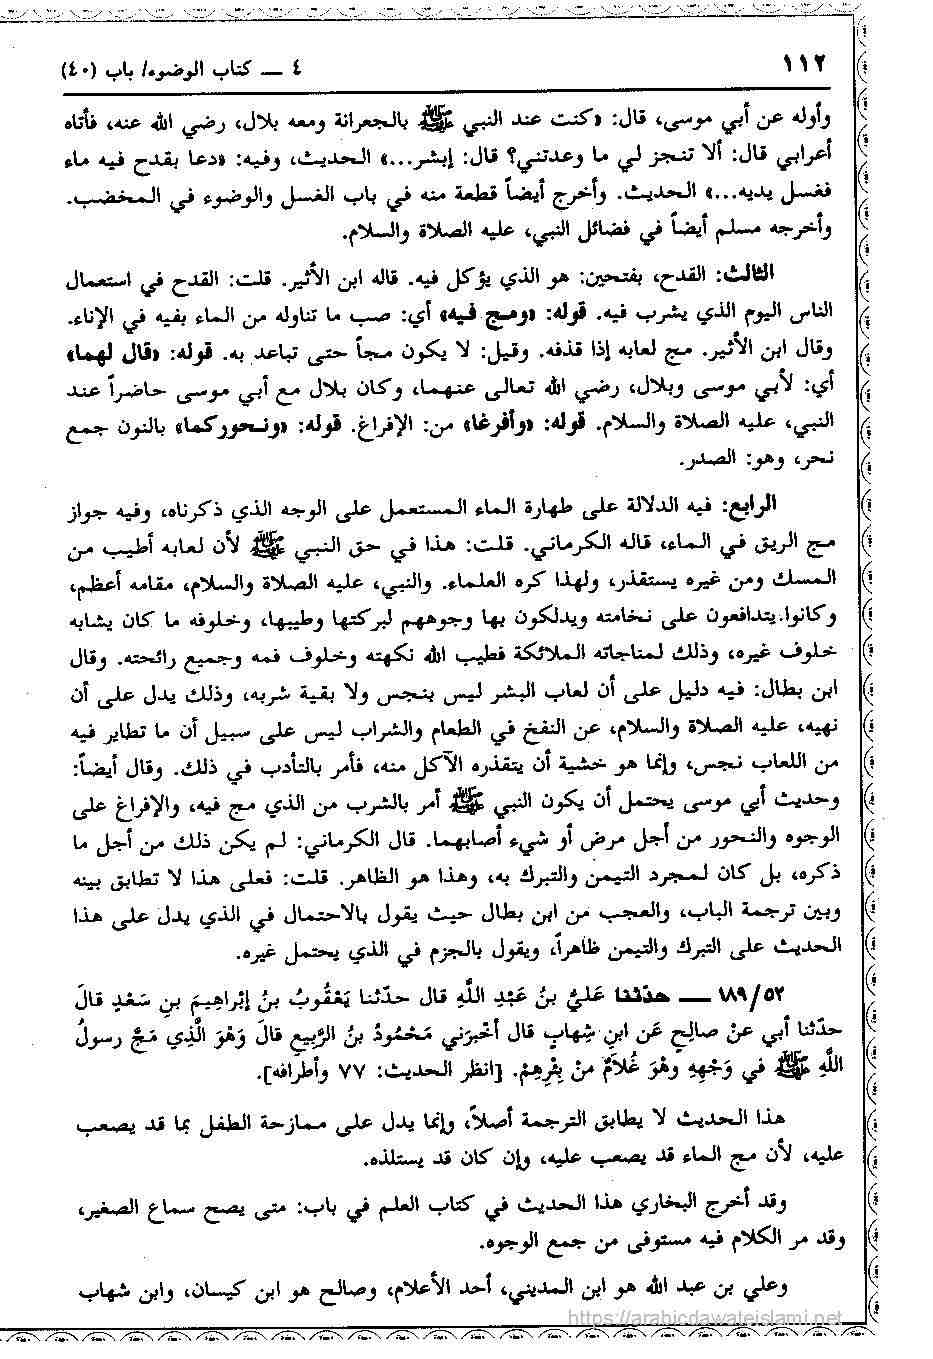 ١١٢
٤ ــ كتاب الوضوء/ باب (٤٠)
وأوله عن أبي موسى، قال: «كنت عند النبي ﷺ بالجعرانة ومعه بلال، رضي الله عنه، فأتاه
أعرابي قال: ألا تنجز لي ما وعدتني؟ قال: إبشر...» الحديث، وفيه: «دعا بقدح فيه ماء
فغسل يديه...» الحديث. وأخرج أيضاً قطعة منه في باب الغسل والوضوء في المخضب.
وأخرجه مسلم أيضاً في فضائل النبي، عليه الصلاة والسلام.
الثالث: القدح، بفتحين: هو الذي يؤكل فيه. قاله ابن الأثير. قلت: القدح في استعمال
الناس اليوم الذي يشرب فيه. قوله: «ومج فيه» أي: صب ما تناوله من الماء بفيه في الإناء.
وقال ابن الأثير. مج لعابه إذا قذفه. وقيل: لا يكون مجاً حتى تباعد به. قوله: «قال لهما»
أي: لأبي موسى وبلال، رضي الله تعالى عنهما، وكان بلال مع أبي موسى حاضراً عند
النبي، عليه الصلاة والسلام. قوله: «وأفرغا» من: الإفراغ. قوله: «ونحوركما» بالنون جمع
نحر، وهو: الصدر.
الرابع: فيه الدلالة على طهارة الماء المستعمل على الوجه الذي ذكرناه، وفيه جواز
مج الريق في الماء، قاله الكرماني. قلت: هذا في حق النبي ﷺ لأن لعابه أطيب من
المسك ومن غيره يستقذر، ولهذا كره العلماء. والنبي، عليه الصلاة والسلام، مقامه أعظم،
وكانوا يتدافعون على نخامته ويدلكون بها وجوههم لبركتها وطيبها، وخلوفه ما كان يشابه
خلوف غيره، وذلك لمناجاته الملائكة فطيب الله نكهته وخلوف فمه وجميع رائحته. وقال
ابن بطال: فيه دليل على أن لعاب البشر ليس بنجس ولا بقية شربه، وذلك يدل على أن
نهيه، عليه الصلاة والسلام، عن النفخ في الطعام والشراب ليس على سبيل أن ما تطاير فيه
من اللعاب نجس، وإنما هو خشية أن يتقذره الآكل منه، فأمر بالتأدب في ذلك. وقال أيضاً:
وحديث أبي موسى يحتمل أن يكون النبي ﷺ أمر بالشرب من الذي مج فيه، والإفراغ على
الوجوه والنحور من أجل مرض أو شيء أصابهما. قال الكرماني: لم يكن ذلك من أجل ما
ذكره، بل كان لمجرد التيمن والتبرك به، وهذا هو الظاهر. قلت: فعلى هذا لا تطابق بينه
وبين ترجمة الباب، والعجب من ابن بطال حيث يقول بالاحتمال في الذي يدل على هذا
الحديث على التبرك والتيمن ظاهراً، ويقول بالجزم في الذي يحتمل غيره.
١٨٩/٥٢ ــ حدّثنا عَلِيُّ بنُ عَبْدِ اللَّهِ قال حدّثنا يَعْقُوبُ بنُ إبْراهِيمَ بنِ سَعْدٍ قالَ
حدّثنا أبي عنْ صالحٍ عَن ابنِ شِهابٍ قال أخْبرَني مَحْمُودُ بنُ الرَّبيعِ قالَ وَهْوَ الَّذِي مَجَّ رسولُ
اللَّهِ ﷺ في وَجْهِهِ وهْوَ غُلاَمٌ مِنْ بِئْرِهِمْ. [انظر الحديث: ٧٧ وأطرافه].
هذا الحديث لا يطابق الترجمة أصلاً، وإنما يدل على ممازحة الطفل بما قد يصعب
عليه، لأن مج الماء قد يصعب عليه، وإن كان قد يستلذه.
وقد أخرج البخاري هذا الحديث في كتاب العلم في باب: متى يصح سماع الصغير،
وقد مر الكلام فيه مستوفى من جمع الوجوه.
وعلي بن عبد الله هو ابن المديني، أحد الأعلام، وصالح هو ابن كيسان، وابن شهاب
https://arabicdawateislami.net